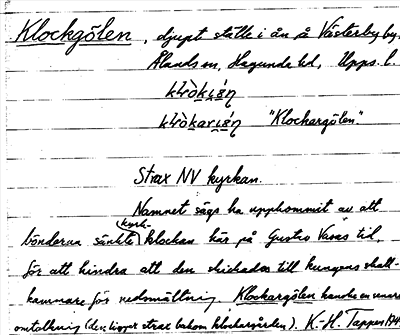 Klockgölen, djupt ställe i ån å Västerby by,
Ålands sn, Hagunda hd, Upps. l.
"Klockargölen"
Strax NV kyrkan.
Namnet sägs ha uppkommit av att
bönderna sänkte kyrk-klockan här på Gustav Vasas tid,
för att hindra att den skickades till kungens skatt-
kammare för nedsmältning. Klockargölen kanske en senare
omtolkning (den ligger strax bakom klockargården). K-H. Tappen